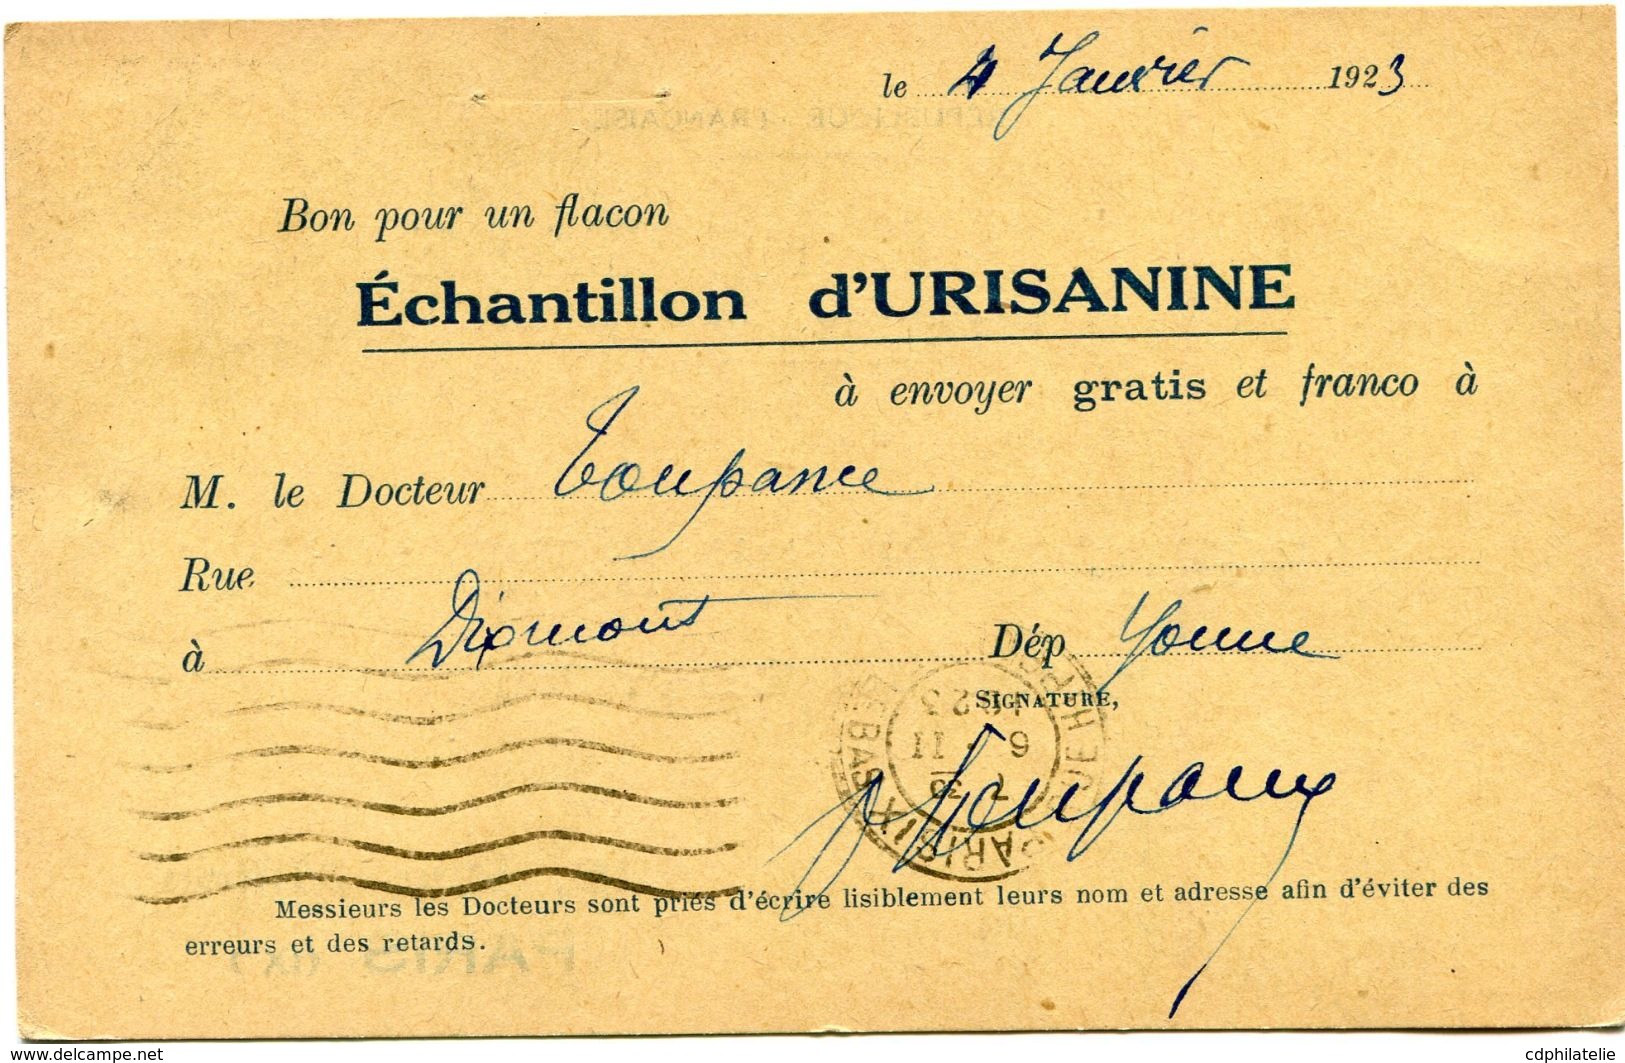 le 4 Janvier 1923
Bon pour un flacon
Échantillon d'URISANINE
à envoyer gratis et franco à
M. le Docteur Toupance
Rue
à Dixmont Dép Yonne
SIGNATURE,
Toupance
Messieurs les Docteurs sont priés d'écrire lisiblement leurs nom et adresse afin d'éviter des
erreurs et des retards.
www.delcampe.net
cdphilatelie